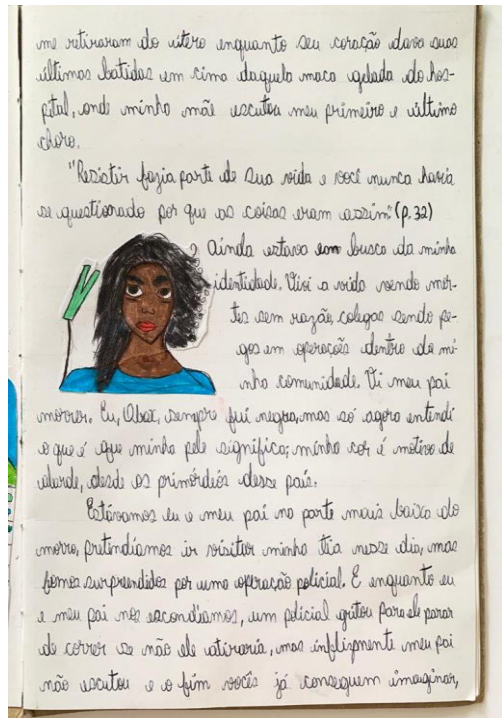 me retiraram do útero enquanto seu coração dava suas
últimas batidas em cima daquela maca gelada do hos-
pital, onde minha mãe escutou meu primeiro e último
choro.
"Resistir fazia parte de sua vida e você nunca havia
se questionado por que as coisas eram assim" (p. 32)
Ainda estava em busca da minha
identidade. Vivi a vida vendo mor-
tes sem razão, colegas sendo pe-
gos em operações dentro da mi-
nha comunidade. Vi meu pai
morrer. Eu, sempre fui negra, mas só agora entendi
o que é que minha pele significa; minha cor é motivo de
alarde, desde os primórdios desse país.
Estávamos eu e meu pai na parte mais baixa do
morro, pretendíamos ir visitar minha tia nesse dia, mas
fomos surpreendidos por uma operação policial. E enquanto eu
e meu pai nos escondíamos, um policial gritou para ele parar
de correr se não ele atiraria, mas infelizmente meu pai
não escutou e o fim vocês já conseguem imaginar,